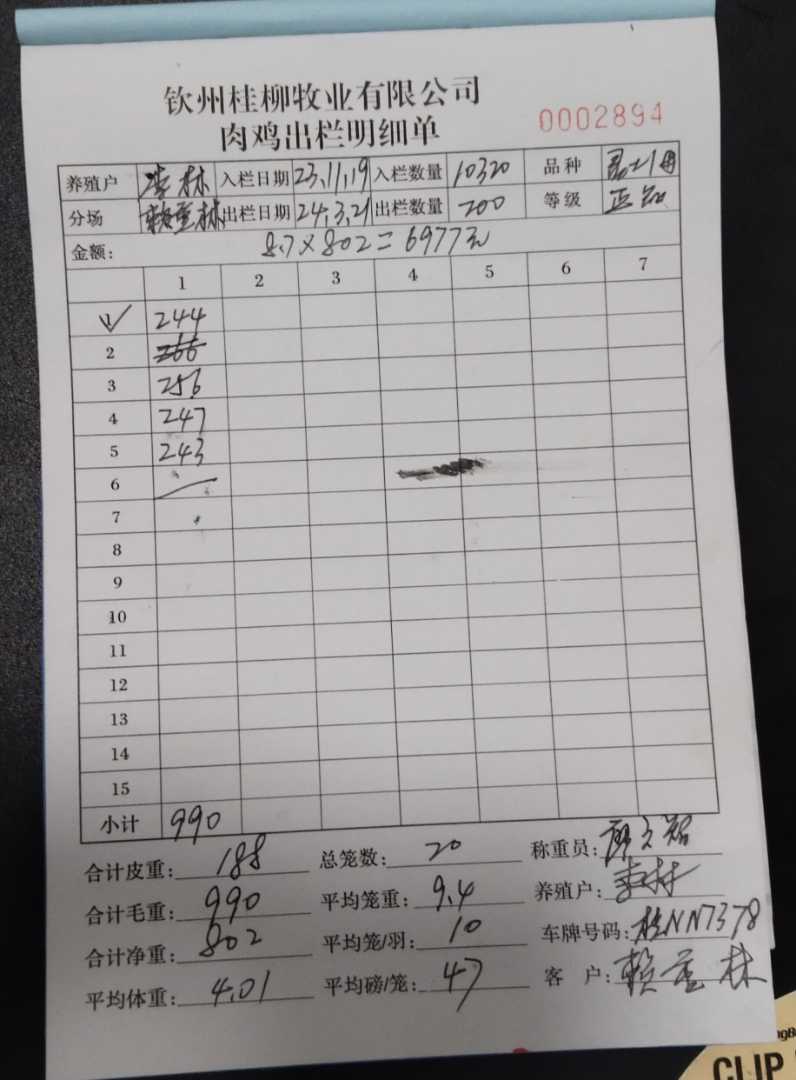 钦州桂柳牧业有限公司
肉鸡出栏明细单
0002894
养殖户 李林 入栏日期 23.11.19 入栏数量 10320 品种
分场 赖重林 出栏日期 24.3.21 出栏数量 200 等级 正品
金额: 8.7×802=6977元
1 2 3 4 5 6 7
1 244
2 266
3 256
4 247
5 243
6
7
8
9
10
11
12
13
14
15
小计 990
合计皮重: 188 总笼数: 20 称重员:
合计毛重: 990 平均笼重: 9.4 养殖户: 李林
合计净重: 802 平均笼/羽: 10 车牌号码: 桂NN7378
平均体重: 4.01 平均磅/笼: 47 客 户: 赖重林
CLIP